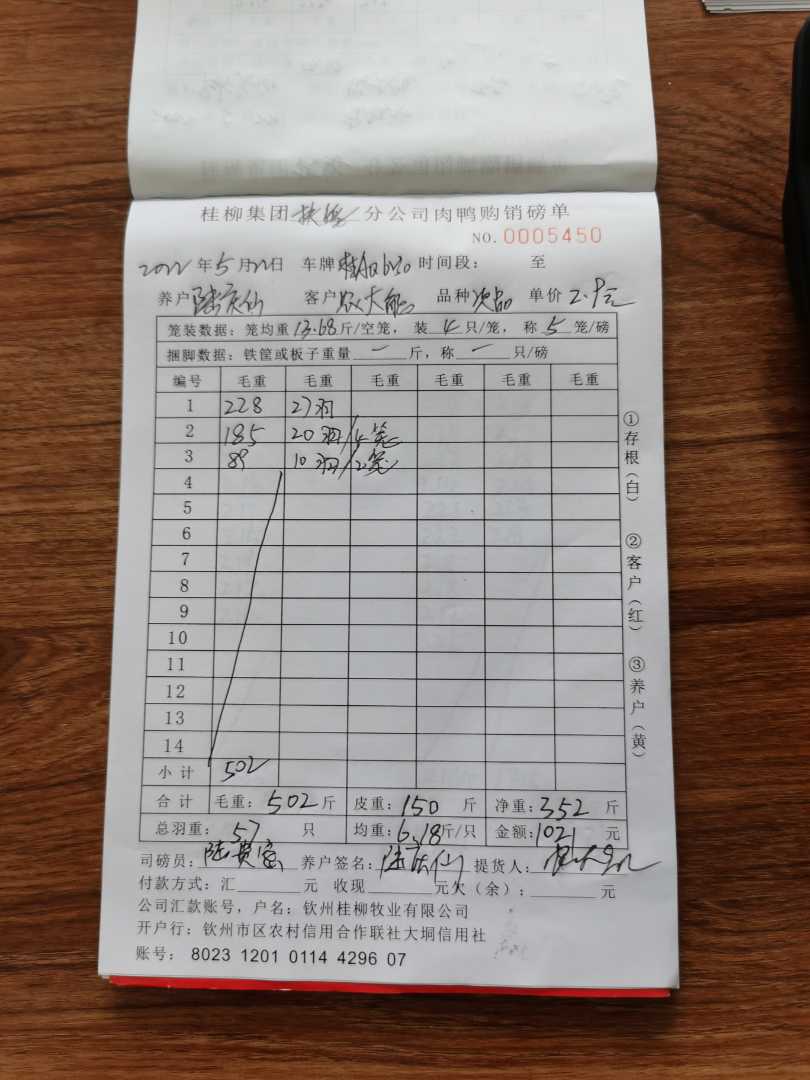 桂柳集团 扶绥 分公司肉鸭购销磅单
NO. 0005450
2022年5月22日 车牌 时间段： 至
养户 陆庆仙 客户 农大能 品种 次品 单价 2.9元
笼装数据：笼均重13.68斤/空笼，装4只/笼，称5笼/磅
捆脚数据：铁筐或板子重量一斤，称一只/磅
编号 毛重 毛重 毛重 毛重 毛重 毛重
1 228 27羽
2 185 20羽/4笼
3 89 10羽/2笼
4
5
6
7
8
9
10
11
12
13
14
小计 502
合计 毛重：502斤 皮重：150斤 净重：352斤
总羽重：57只 均重：6.18斤/只 金额：1021元
司磅员： 养户签名：陆庆仙 提货人：
付款方式：汇______元 收现______元欠（余）：______元
公司汇款账号，户名：钦州桂柳牧业有限公司
开户行：钦州市区农村信用合作联社大垌信用社
账号：8023 1201 0114 4296 07
①存根（白） ②客户（红） ③养户（黄）